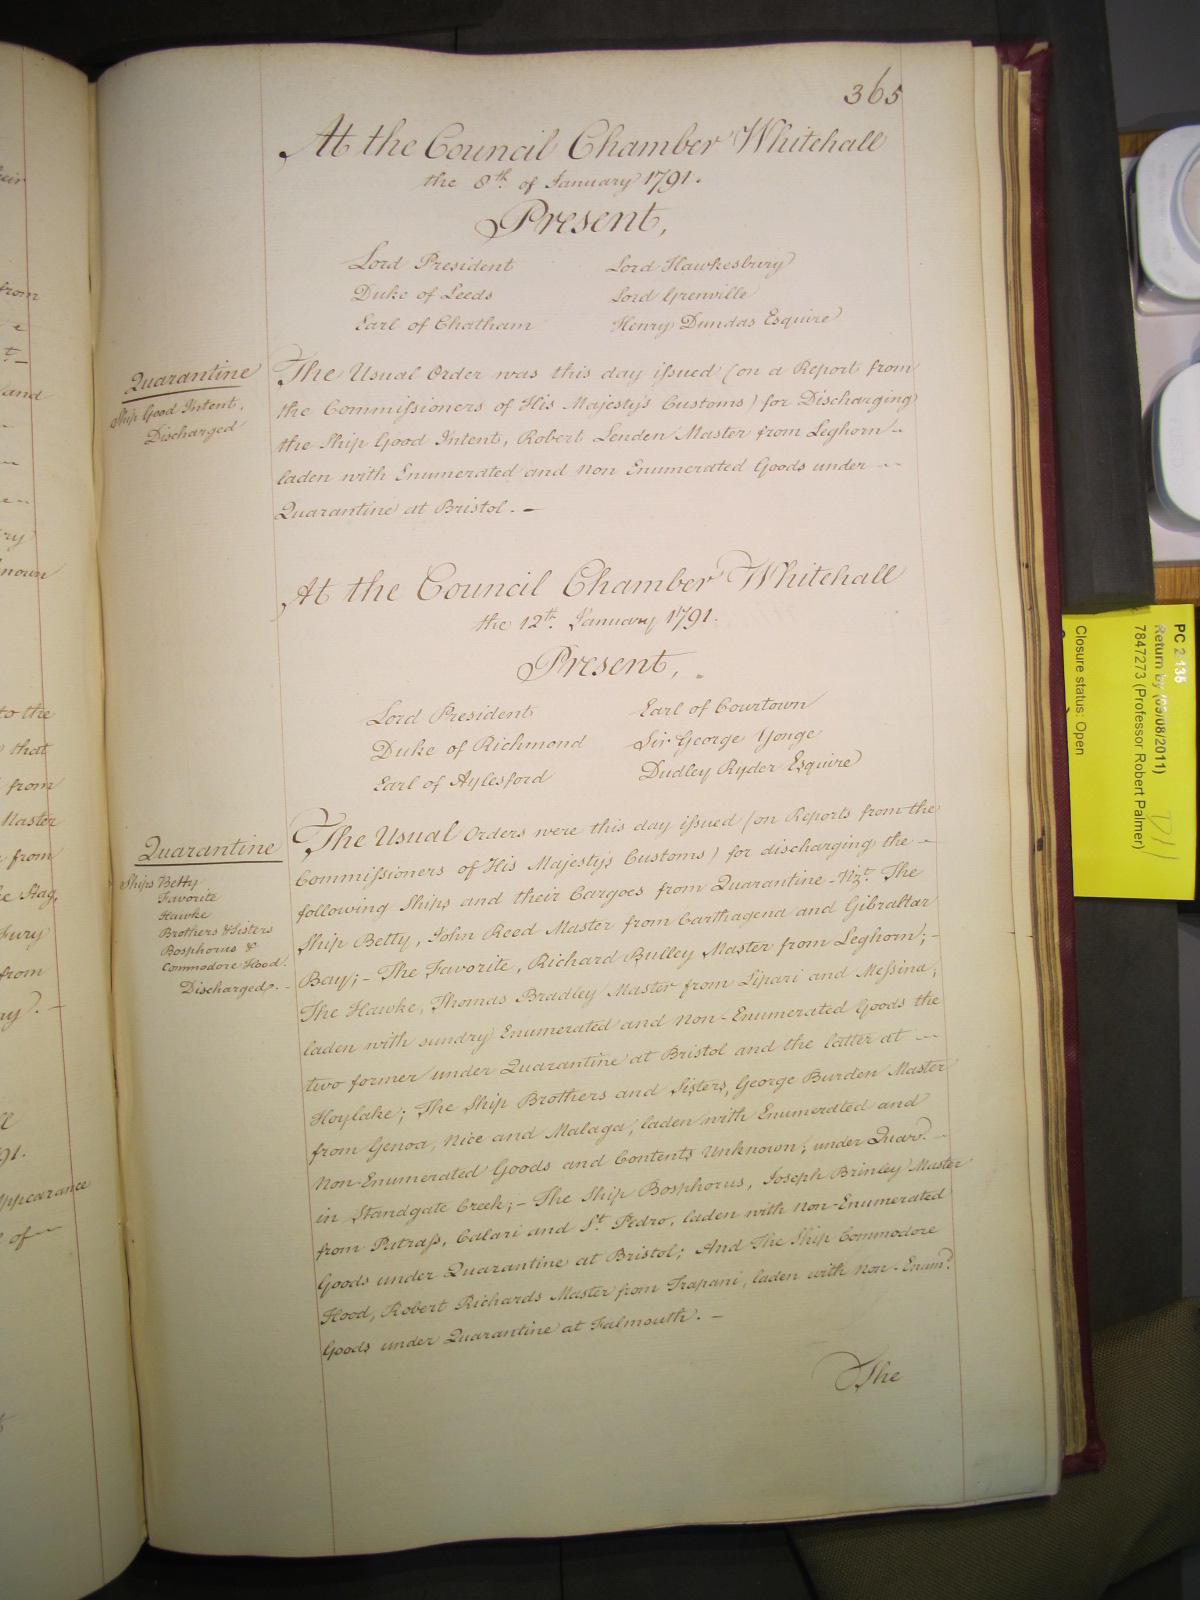 365
At the Council Chamber Whitehall
the 8th. of January 1791.
Present,
Lord President
Lord Hawkesbury
Duke of Leeds
Lord Grenville
Earl of Chatham
Henry Dundas Esquire
Quarantine
Ship Good Intent,
Discharged
The Usual Order was this day issued (on a Report from
the Commissioners of His Majesty's Customs) for Discharging
the Ship Good Intent, Robert Lenden Master from Leghorn --
laden with Enumerated and Non Enumerated Goods under --
Quarantine at Bristol. -
At the Council Chamber Whitehall
the 12th. January 1791.
Present,
Lord President
Earl of Courtown
Duke of Richmond
Sir George Yonge
Earl of Aylesford
Dudley Ryder Esquire
Quarantine
Ships Betty
Favorite
Hawke
Brothers & Sisters
Bosphorus &
Commodore Hood.
Discharged. -
The Usual Orders were this day issued (on Reports from the
Commissioners of His Majesty's Customs) for discharging the -
following Ships and their Cargoes from Quarantine - Vizt. The
Ship Betty, John Reed Master from Carthagena and Gibraltar
Bay; - The Favorite, Richard Bulley Master from Leghorn; -
The Hawke, Thomas Bradley Master from Lipari and Messina;
laden with sundry Enumerated and Non-Enumerated Goods the
two former under Quarantine at Bristol and the latter at --
Hoylake; The Ship Brothers and Sisters, George Burden Master
from Genoa, Nice and Malaga, laden with Enumerated and
Non-Enumerated Goods and Contents Unknown, under Quar.. -
in Standgate Creek; - The Ship Bosphorus, Joseph Brinley Master
from Patrass, Calari and St. Pedro, laden with Non-Enumerated
Goods under Quarantine at Bristol; And The Ship Commodore
Hood, Robert Richards Master from Trapani, laden with Non-Enumd.
Goods under Quarantine at Falmouth. -
The
PC 2 135
Return by (09/08/2011)
7847273 (Professor Robert Palmer)
Closure status: Open
eir
from
e
t. -
and
ry
nown
to the
that
from
Master
from
e Stag,
Fury
from
ry. -
91.
Appearance
of -